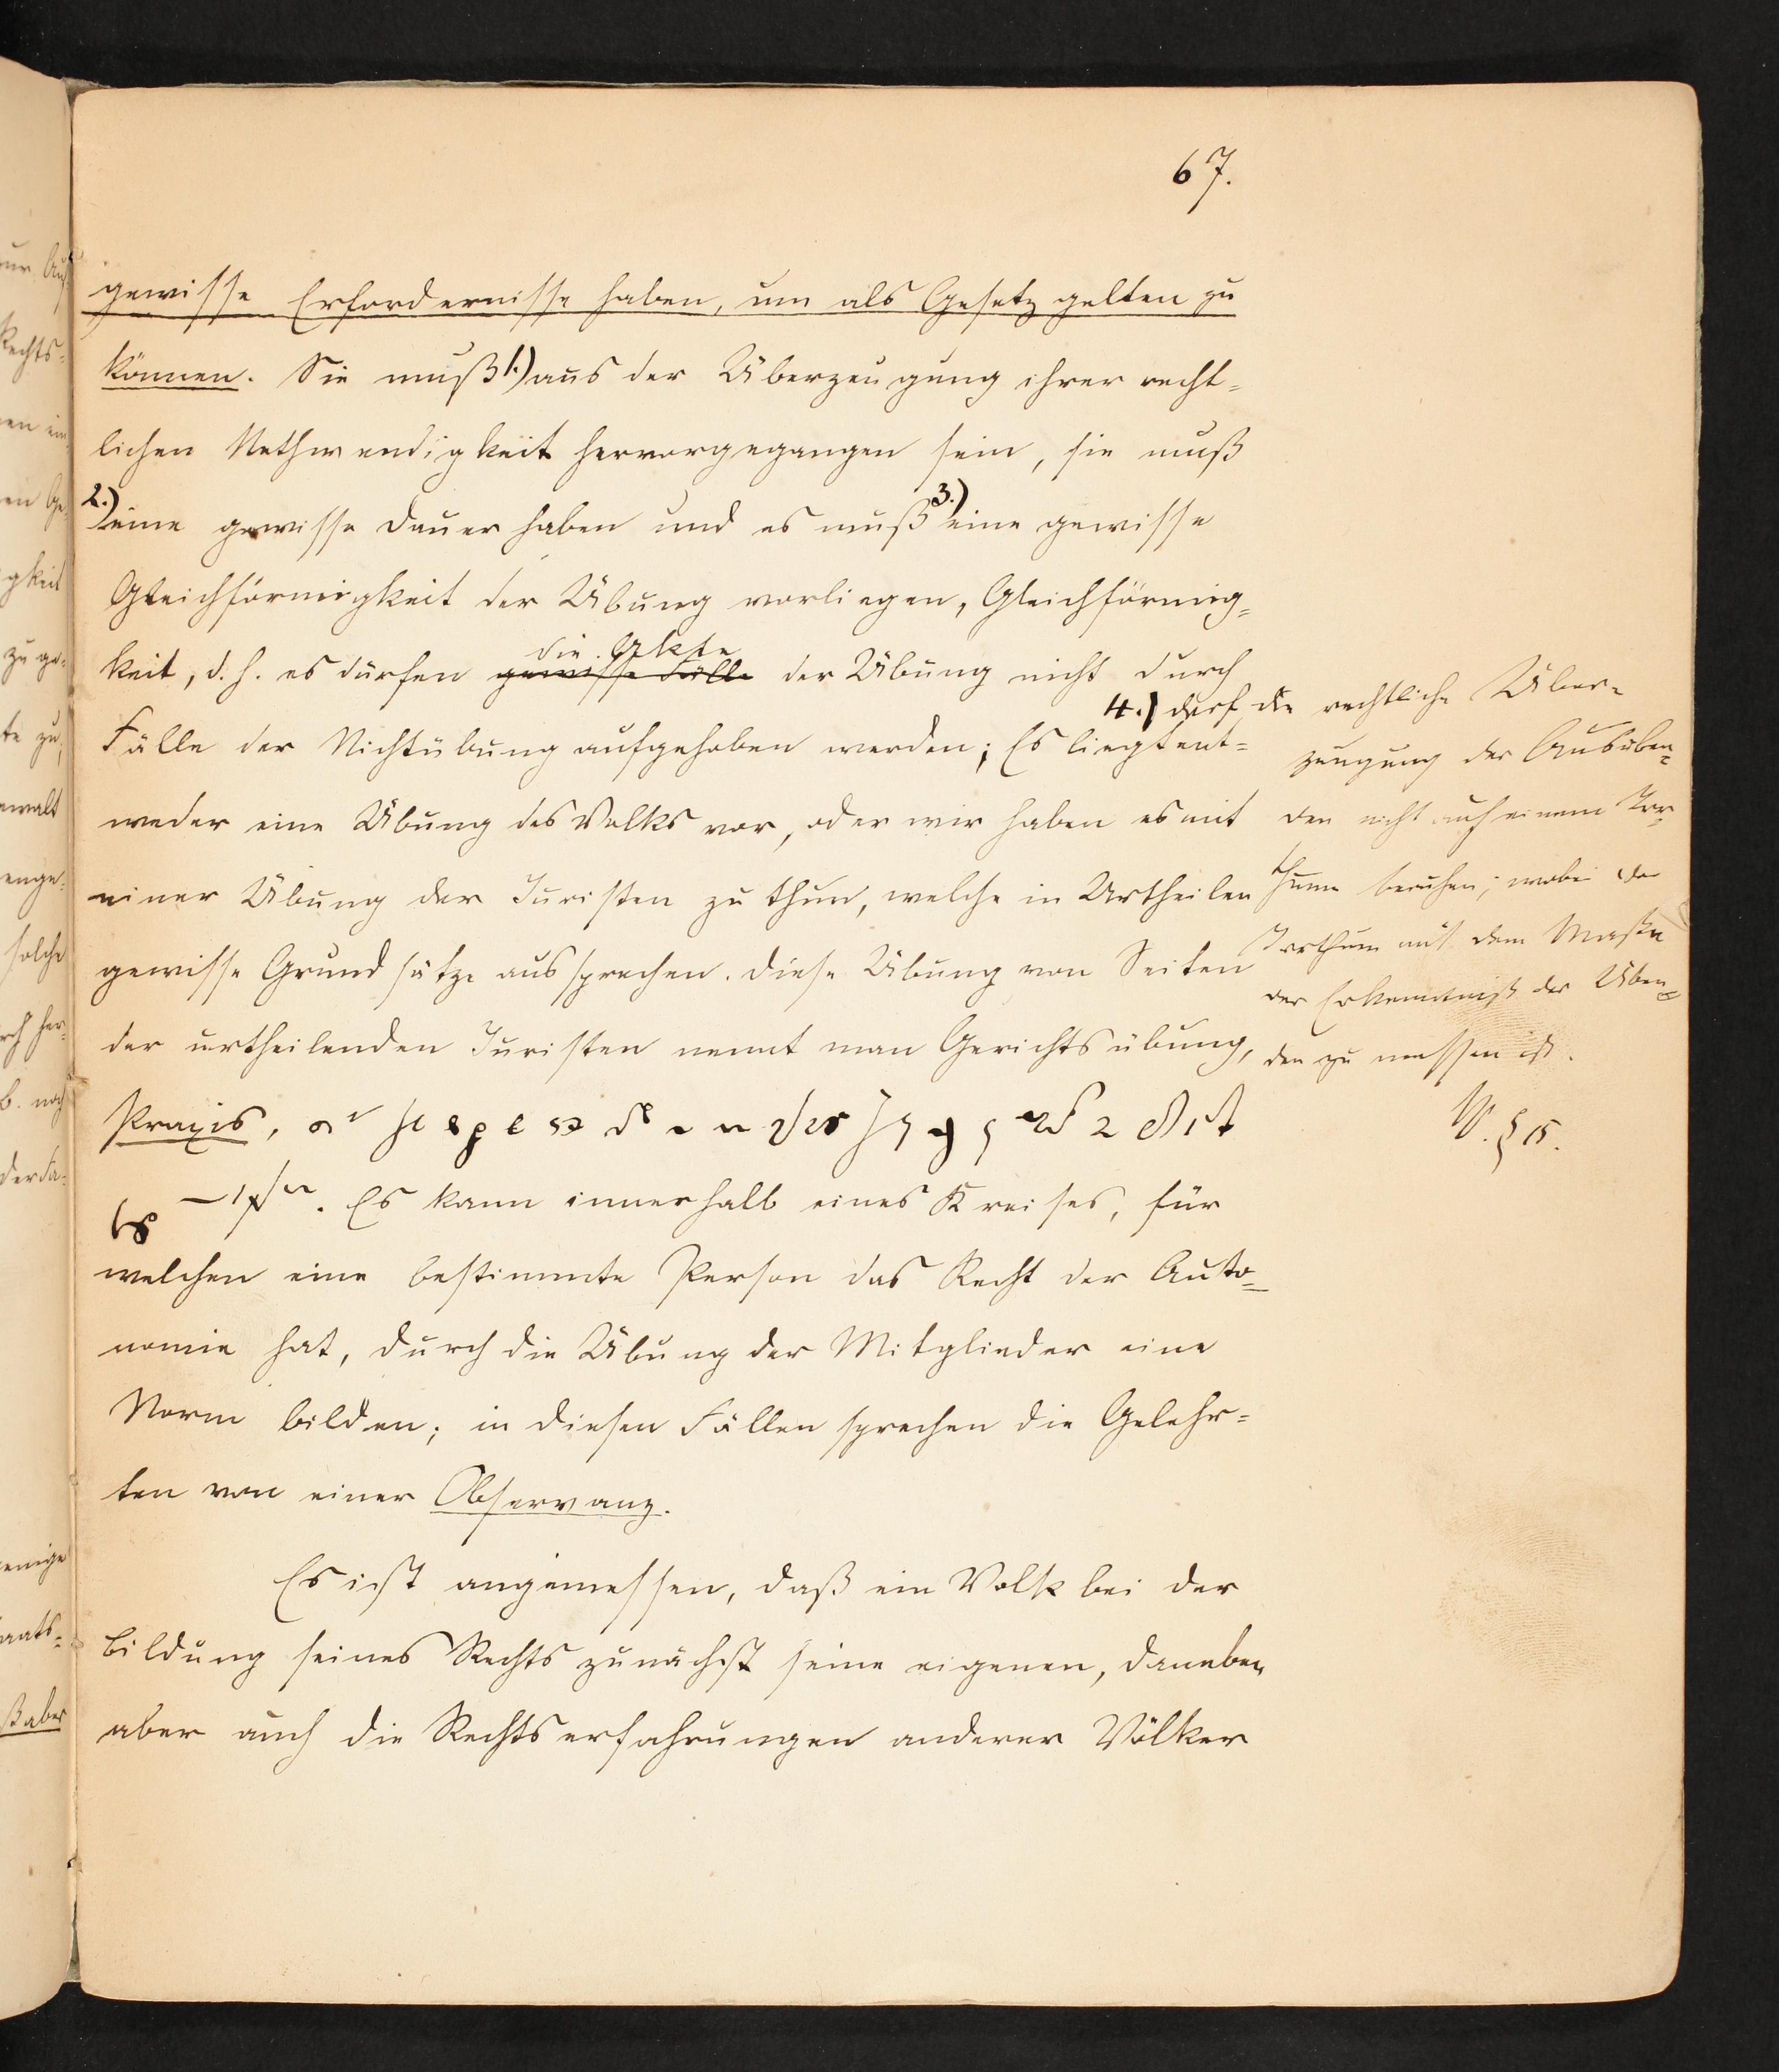 67.
gewisse Erfordernisse haben, um als Gesetz gelten zu
können. Sie muß 1.) aus der Überzeugung ihrer recht=
lichen Nothwendigkeit hervorgegangen sein, sie muß
2.) eine gewisse Dauer haben und es muß 3.) eine gewisse
Gleichförmigkeit der Übung vorliegen, Gleichförmig=
die Akte
keit, d. h. es dürfen gewisse Fälle der Übung nicht durch
Fälle der Nichtübung aufgehoben werden; Es liegt ent=
weder eine Übung des Volks vor, oder wir haben es mit
einer Übung der Juristen zu thun, welche in Urtheilen
gewisse Grundsätze aussprechen. Diese Übung von Seiten
der urtheilenden Juristen nennt man Gerichtsübung,
Praxis,
Es kann innerhalb eines Kreises, für
welchen eine bestimmte Person das Recht der Auto=
nomie hat, durch die Übung der Mitglieder eine
Norm bilden; in diesen Fällen sprechen die Gelehr=
ten von einer Observanz.
Es ist angemessen, daß ein Volk bei der
Bildung seines Rechts zunächst seine eigenen, daneben
aber auch die Rechtserfahrungen anderer Völker
4.) darf die rechtliche Über=
zeugung der Ausüben=
den nicht auf einem Irr=
thum beruhen; wobei der
Irrthum mit dem Maße
der Erkenntniß der Üben=
den zu messen ist.
W. § 15.